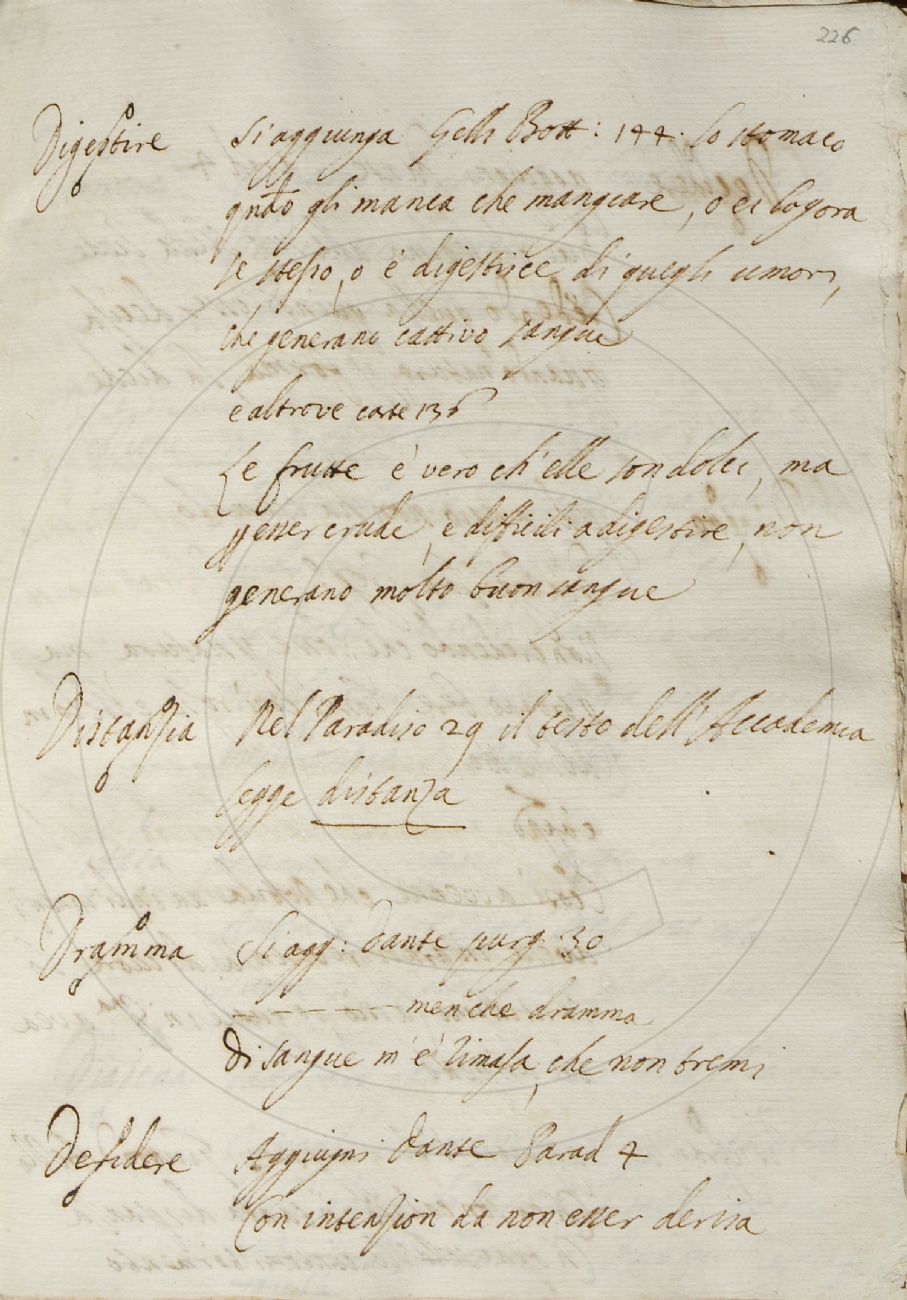 226
Digestire Si aggiunga Gelli Bott: 144. Lo stomaco
qñdo gli manca che mangiare, o ei logora
se stesso, o e' digestisce di quegli umori,
che generano cattivo sangue
e altrove carte 136
Le frutte è vero ch'elle son dolci, ma
esser crude, e difficili a digestire, non
generano molto buon sangue
Distanzia Nel Paradiso 29 il testo dell'Accademia
legge distanza
Dramma Si agg: Dante purg. 30
— — — — — men che dramma
Di sangue m'è rimasa, che non tremi
Deridere Aggiugni Dante Parad 4
Con intenzion da non esser derisa